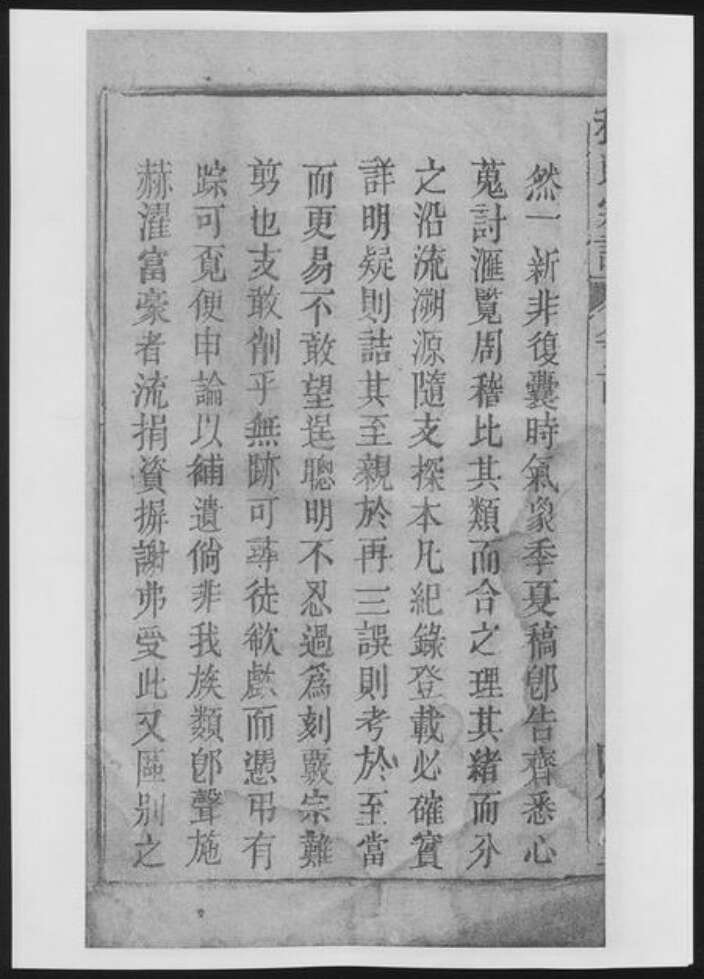 然一新非復曩時氣象季夏稿卽告齊悉心
蒐討滙覽周稽比其類而合之理其緒而分
之沿流溯源隨支探本凡紀錄登載必確實
詳明疑則詰其至親於再三誤則考於至當
而更易不敢望逞聰明不忍過爲刻覈宗難
剪也支敢削乎無跡可尋徒欲歔而憑弔有
踪可覔便申論以補遺倘非我族類卽聲施
赫濯富豪者流捐資摒謝弗受此又區别之